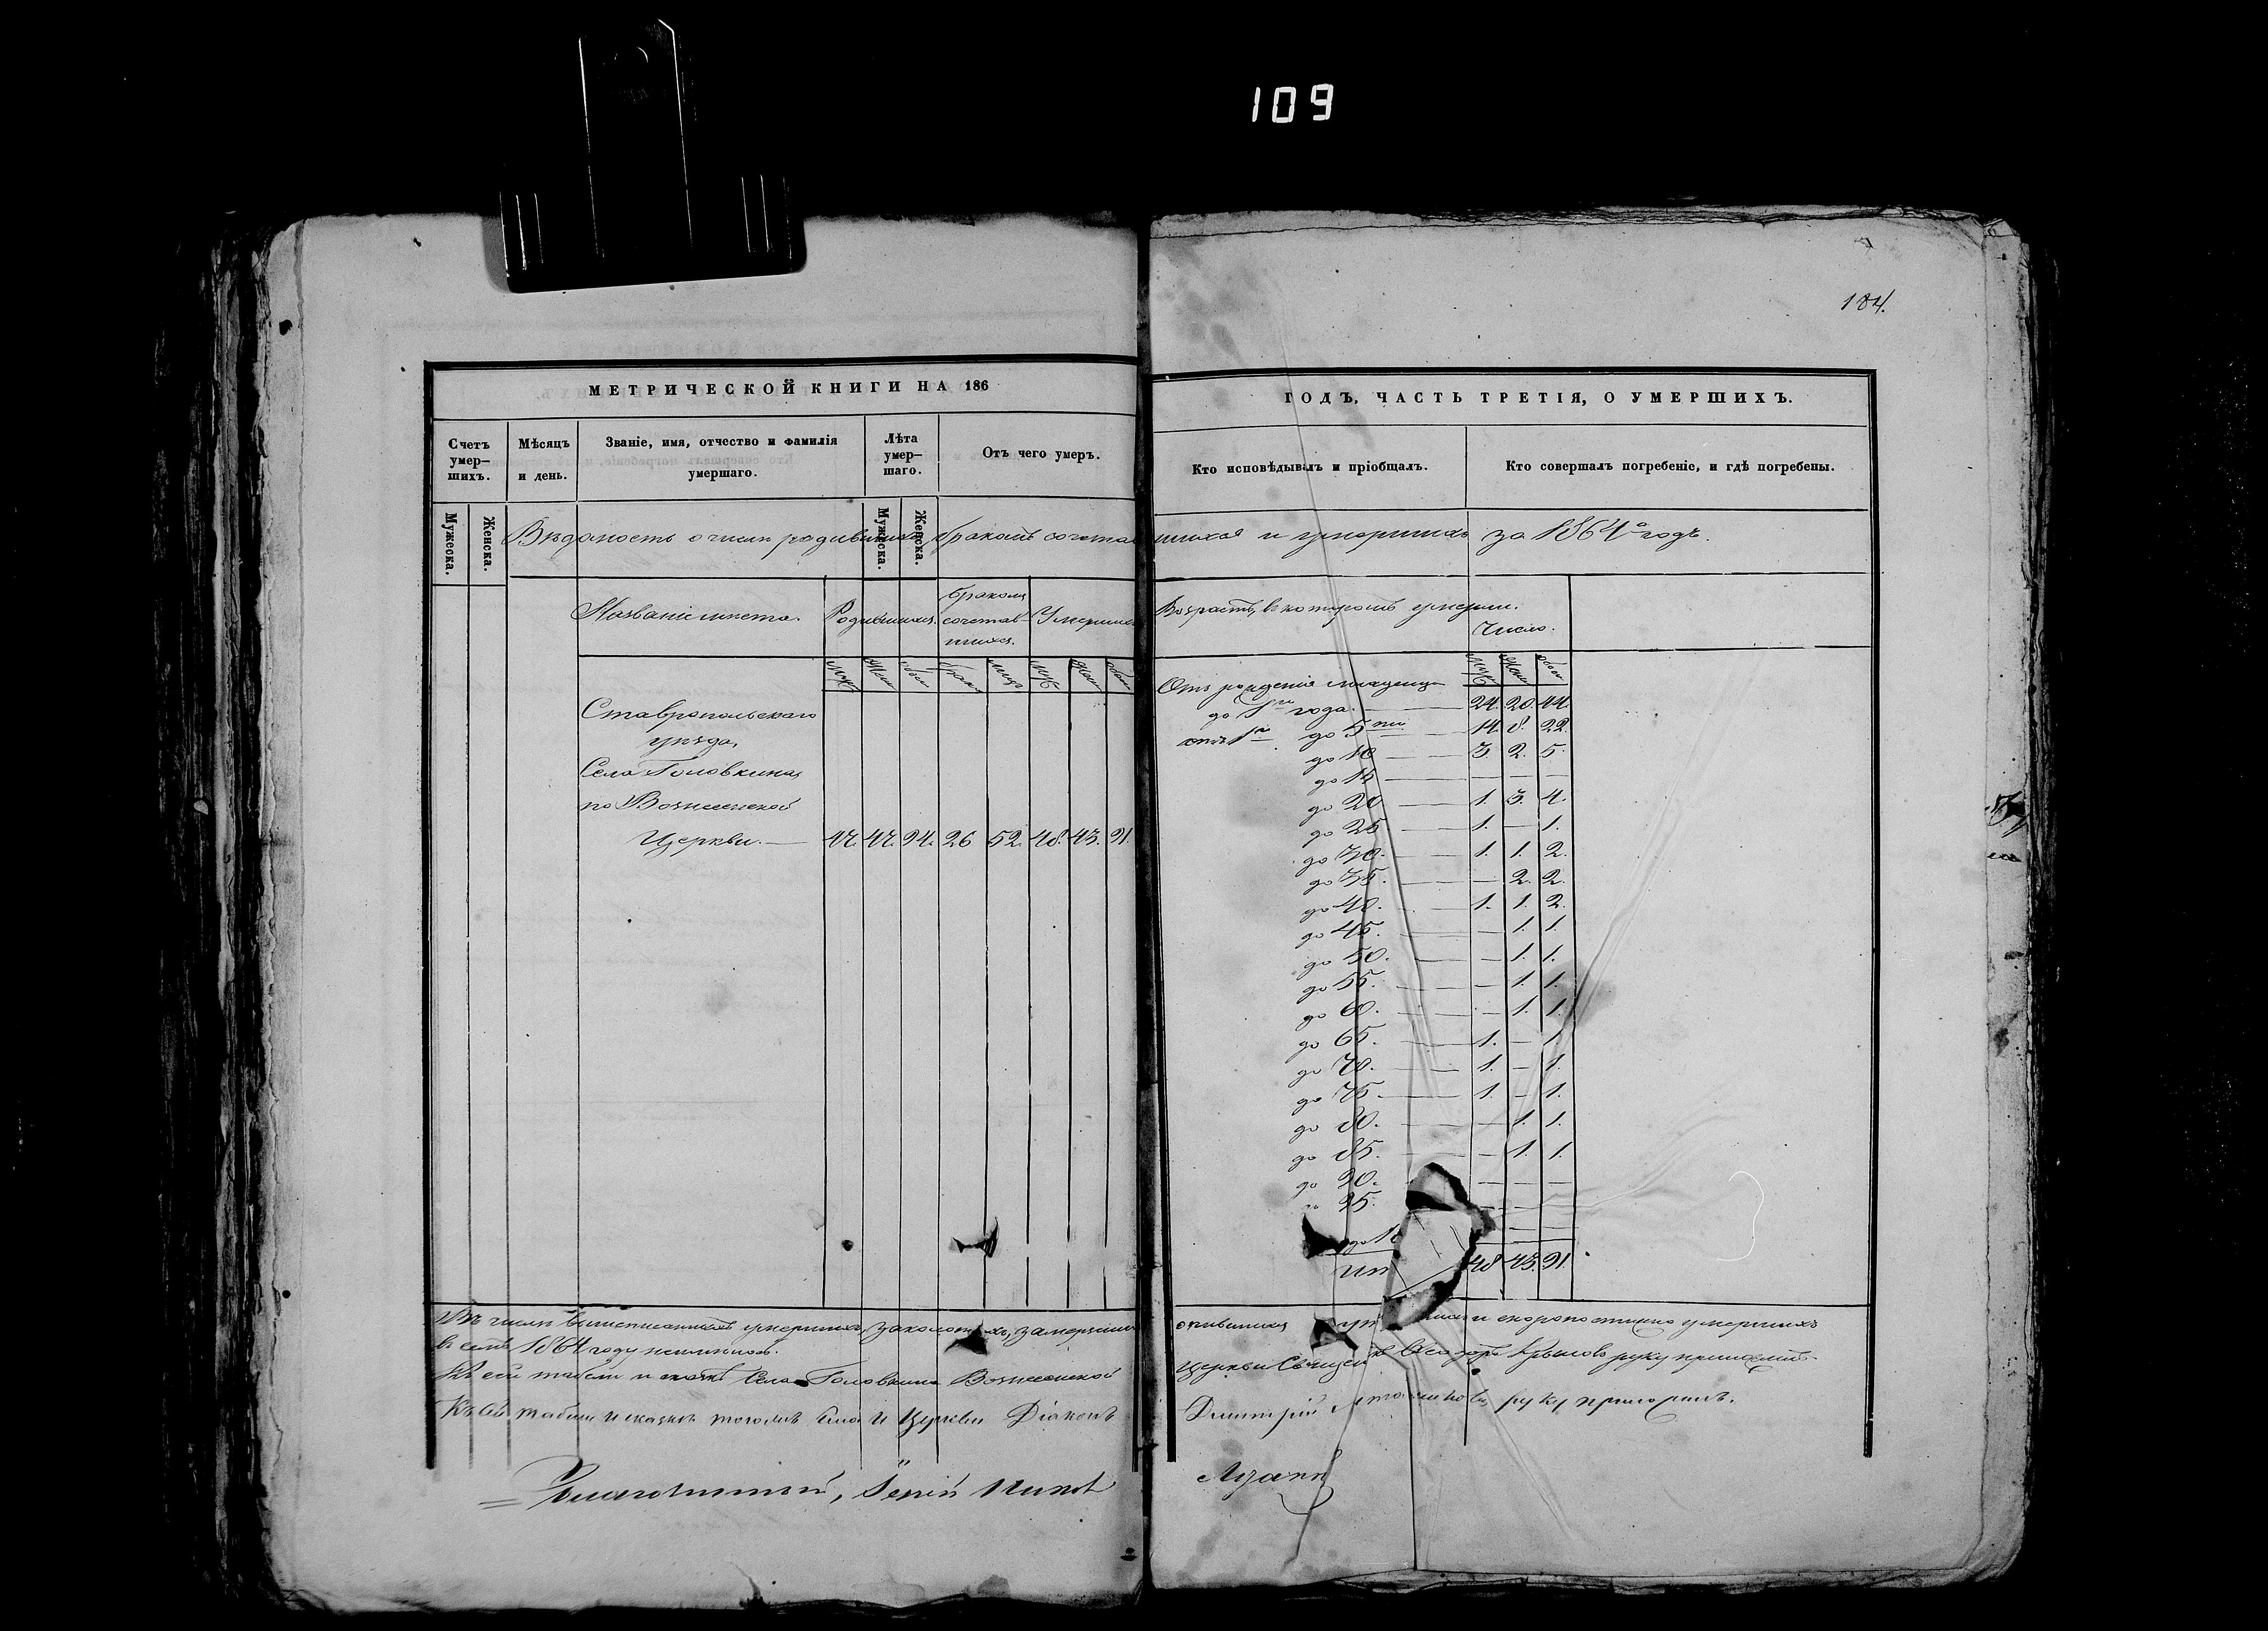 109
184.
МЕТРИЧЕСКОЙ КНИГИ НА 186
ГОДЪ, ЧАСТЬ ТРЕТІЯ, О УМЕРШИХЪ.
Счетъ умер–шихъ.
Мѣсяцъ и день.
Званіе, имя, отчество и фамилія умершаго.
Лѣта умер–шаго.
Отъ чего умеръ.
Кто исповѣдывалъ и пріобщалъ.
Кто совершалъ погребеніе, и гдѣ погребены.
Мужеска.
Женска.
Мужеска.
Женска.
Вѣдомость о числѣ родившихся, бракомъ сочетавшихся и умершихъ за 1864й годъ.
Названіе мѣста.
Родившихся.
бракомъ сочетав-шихся.
Умершихъ
Возрастъ, въ которомъ умерли.
Число.
Ставропольскаго
уѣзда,
Села Головкина
по Вознесенской
Церкви. — 47. 47. 94. 26 52. 48. 43. 91.
Отъ рожденія младенца
до 1го года. — 24. 20. 44.
отъ 1го до 5ти — 14. 8. 22.
до 10 — 3. 2. 5.
до 15 — — — —
до 20 — 1. 3. 4.
до 25 — 1. — 1.
до 30. — 1. 1. 2.
до 35. — — 2. 2.
до 40. — 1. 1. 2.
до 45. — — 1. 1.
до 50. — — 1. 1.
до 55. — — 1. 1.
до 60. — — 1. 1.
до 65. — 1. — 1.
до 70. — 1. — 1.
до 75. — 1. — 1.
до 80. — — 1. 1.
до 85. — — 1. 1.
до 90. — — —
95. — — —
до 1
Ит 48 43. 91.
Въ числѣ вышеписанныхъ умершихъ, замерзших опившихся и скоропостижно умершихъ
въ семъ 1864 году не
Къ сей табели и сказкѣ Села Головкина Вознесенской Церкви Священ Крыловъ руку приложилъ.
Къ сей табели и сказкѣ тогожъ села и Церкви Діаконъ Димитрій руку приложилъ.
Благочинный, Іерей